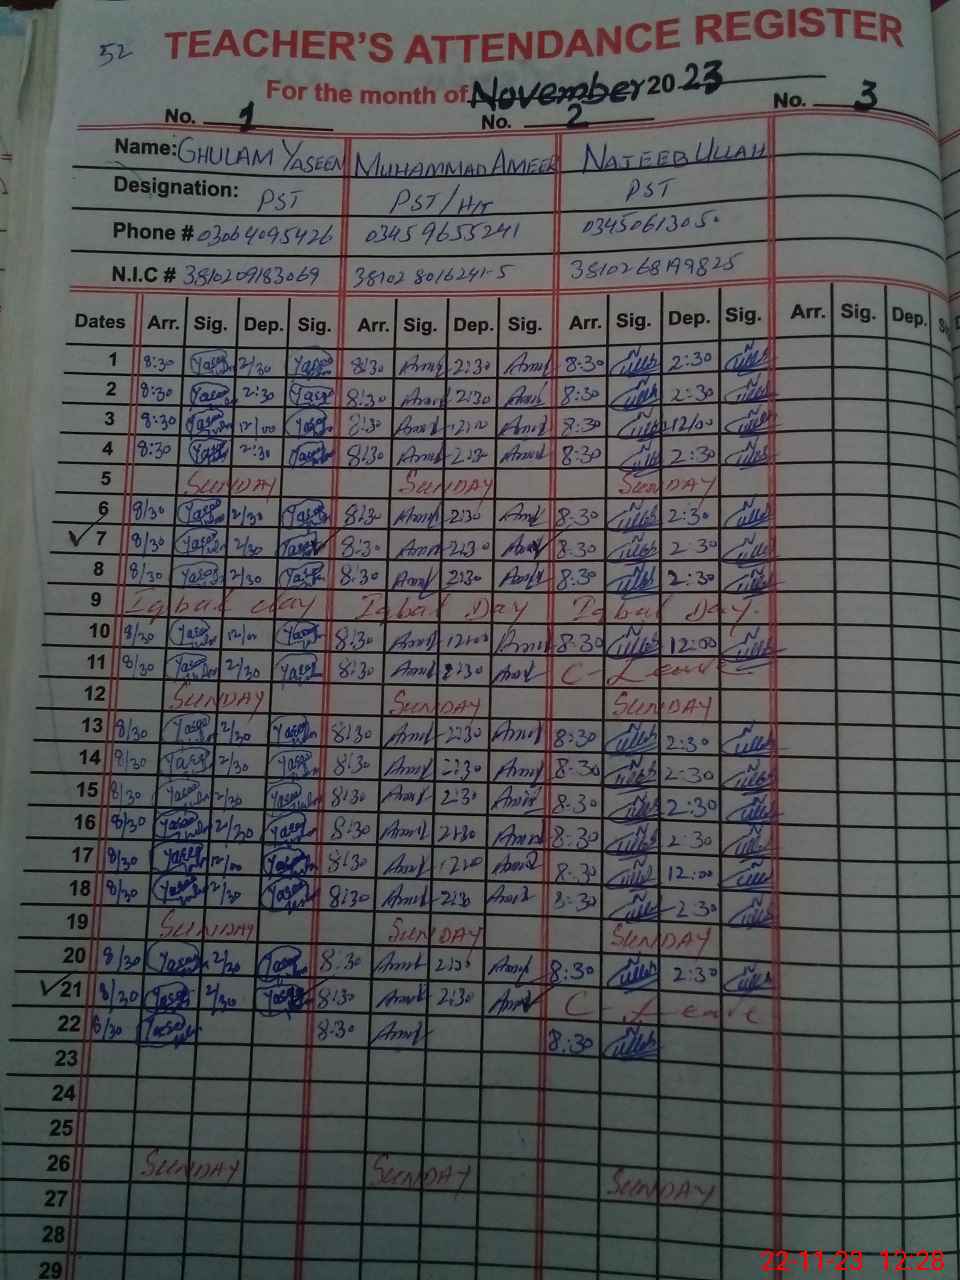 52
TEACHER'S ATTENDANCE REGISTER
For the month of November 2023
No. 1 No. 2 No. 3
Name: GHULAM YASEEN MUHAMMAD AMEER NAJEEB ULLAH
Designation: PST PST/HT PST
Phone # 03064095426 03459655241 0345061305
N.I.C # 3810209183069 38102 8016241-5
Dates Arr. Sig. Dep. Sig. Arr. Sig. Dep. Sig. Arr. Sig. Dep. Sig. Arr. Sig. Dep.
1 8:30 Yaseen 2/30 Yaseen 8:30 Amir 2:30 Amir 8:30 2:30
2 8:30 Yaseen 2:30 Yaseen 8:30 Amir 2:30 Amir 8:30 2:30
3 8:30 Yaseen 12/00 Yaseen 8:30 Amir 12:00 Amir 8:30 12/00
4 8:30 Yaseen 2:30 Yaseen 8:30 Amir 2:30 Amir 8:30 2:30
5 SUNDAY SUNDAY SUNDAY
6 8/30 Yaseen 2/30 Yaseen 8:30 Amir 2:30 Amir 8:30 2:30
7 8/30 Yaseen 2/30 Yaseen 8:30 Amir 2:30 Amir 8:30 2:30
8 8/30 Yaseen 2/30 Yaseen 8:30 Amir 2:30 Amir 8:30 2:30
9 Iqbal day Iqbal Day Iqbal Day.
10 8/30 Yaseen 12/00 Yaseen 8:30 Amir 12:00 Amir 8:30 12:00
11 8/30 Yaseen 2/30 Yaseen 8:30 Amir 2:30 Amir C-Leave
12 SUNDAY SUNDAY SUNDAY
13 8/30 Yaseen 2/30 Yaseen 8:30 Amir 2:30 Amir 8:30 2:30
14 8/30 Yaseen 2/30 Yaseen 8:30 Amir 2:30 Amir 8:30 2:30
15 8/30 Yaseen 2/30 Yaseen 8:30 Amir 2:30 Amir 8:30 2:30
16 8/30 Yaseen 2/30 Yaseen 8:30 Amir 2:30 Amir 8:30 2:30
17 8/30 Yaseen 12/00 Yaseen 8:30 Amir 12:00 Amir 8:30 12:00
18 8/30 Yaseen 2/30 Yaseen 8:30 Amir 2:30 Amir 8:30 2:30
19 SUNDAY SUNDAY SUNDAY
20 8/30 Yaseen 2/30 Yaseen 8:30 Amir 2:30 Amir 8:30 2:30
21 8/30 Yaseen 2/30 Yaseen 8:30 Amir 2:30 Amir C-Leave
22 8/30 Yaseen 8:30 Amir 8:30
23
24
25
26 SUNDAY SUNDAY SUNDAY
27
28
29
22-11-23 12:28